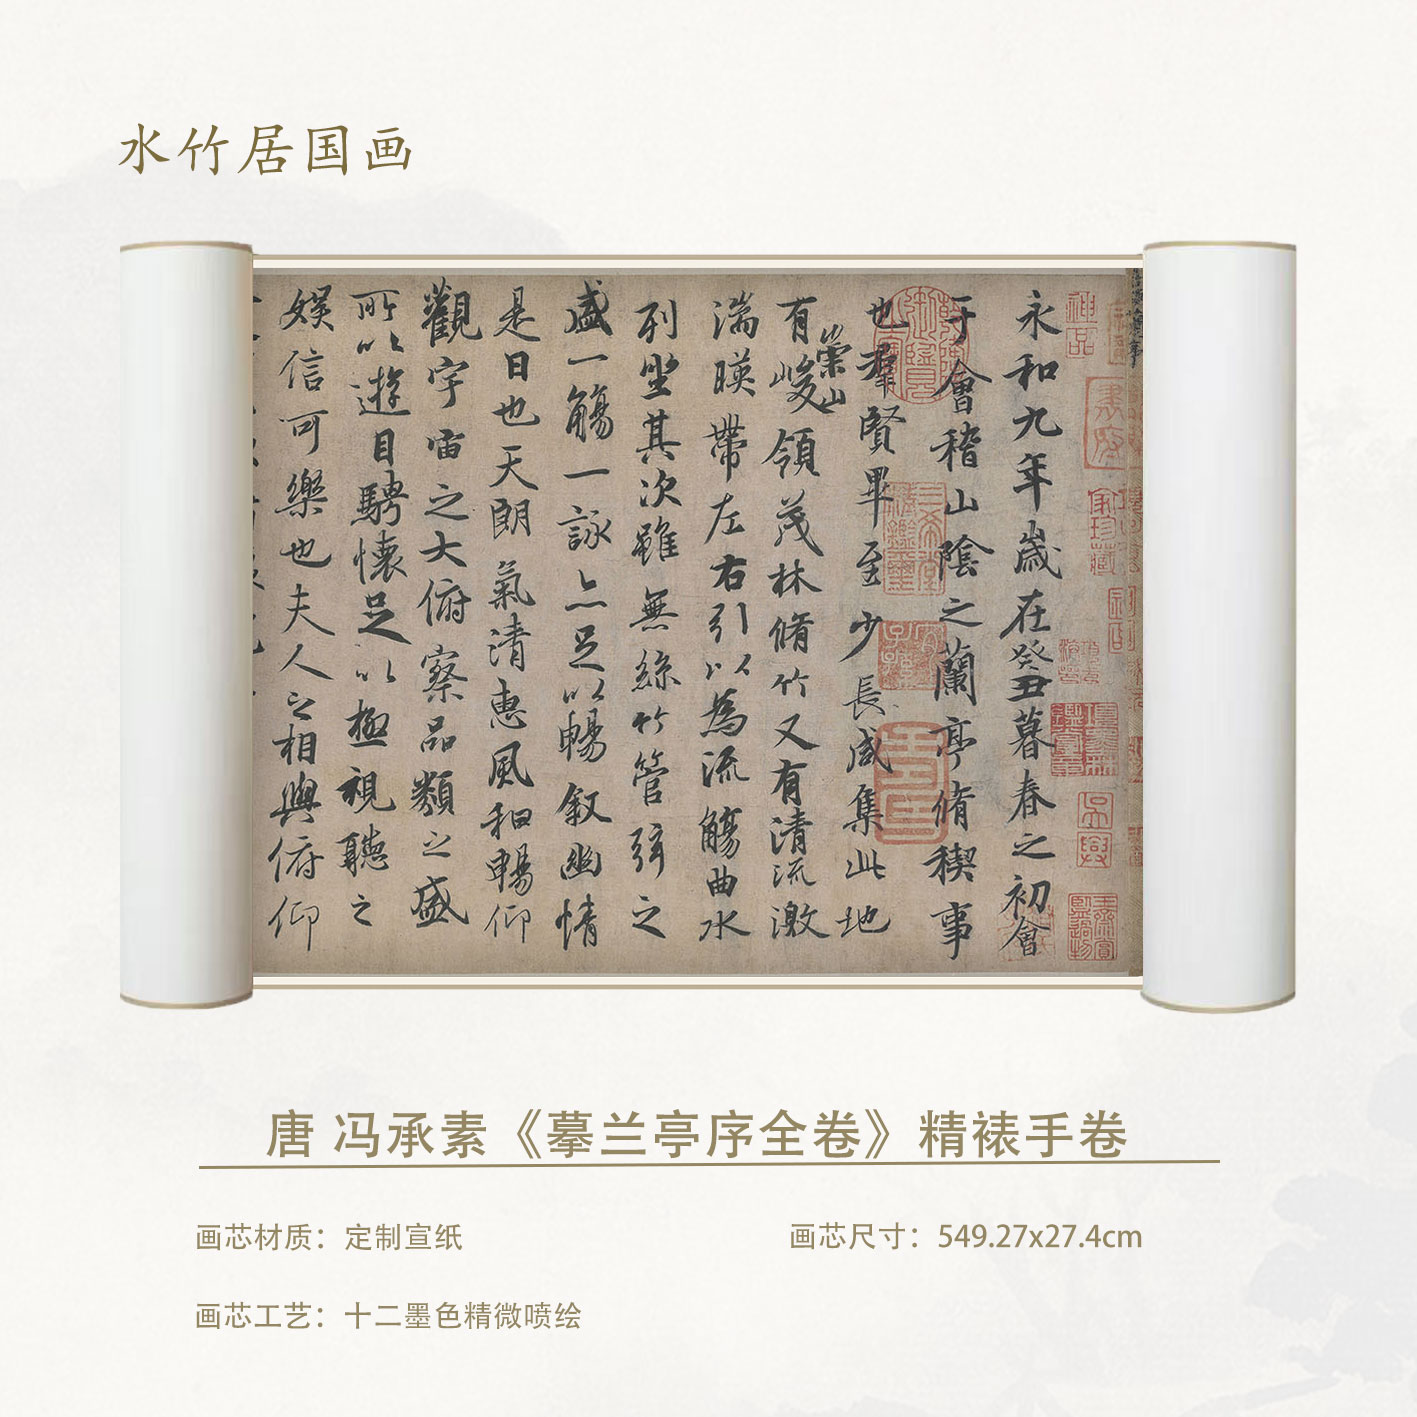 水竹居国画
永和九年歲在癸丑暮春之初會
于會稽山陰之蘭亭脩稧事
也羣賢畢至少長咸集此地
有崇山峻領茂林脩竹又有清流激
湍暎帶左右引以為流觴曲水
列坐其次雖無絲竹管弦之
盛一觴一詠亦足以暢叙幽情
是日也天朗氣清惠風和暢仰
觀宇宙之大俯察品類之盛
所以遊目騁懷足以極視聽之
娛信可樂也夫人之相與俯仰
唐 冯承素《摹兰亭序全卷》精裱手卷
画芯材质：定制宣纸
画芯尺寸：549.27x27.4cm
画芯工艺：十二墨色精微喷绘